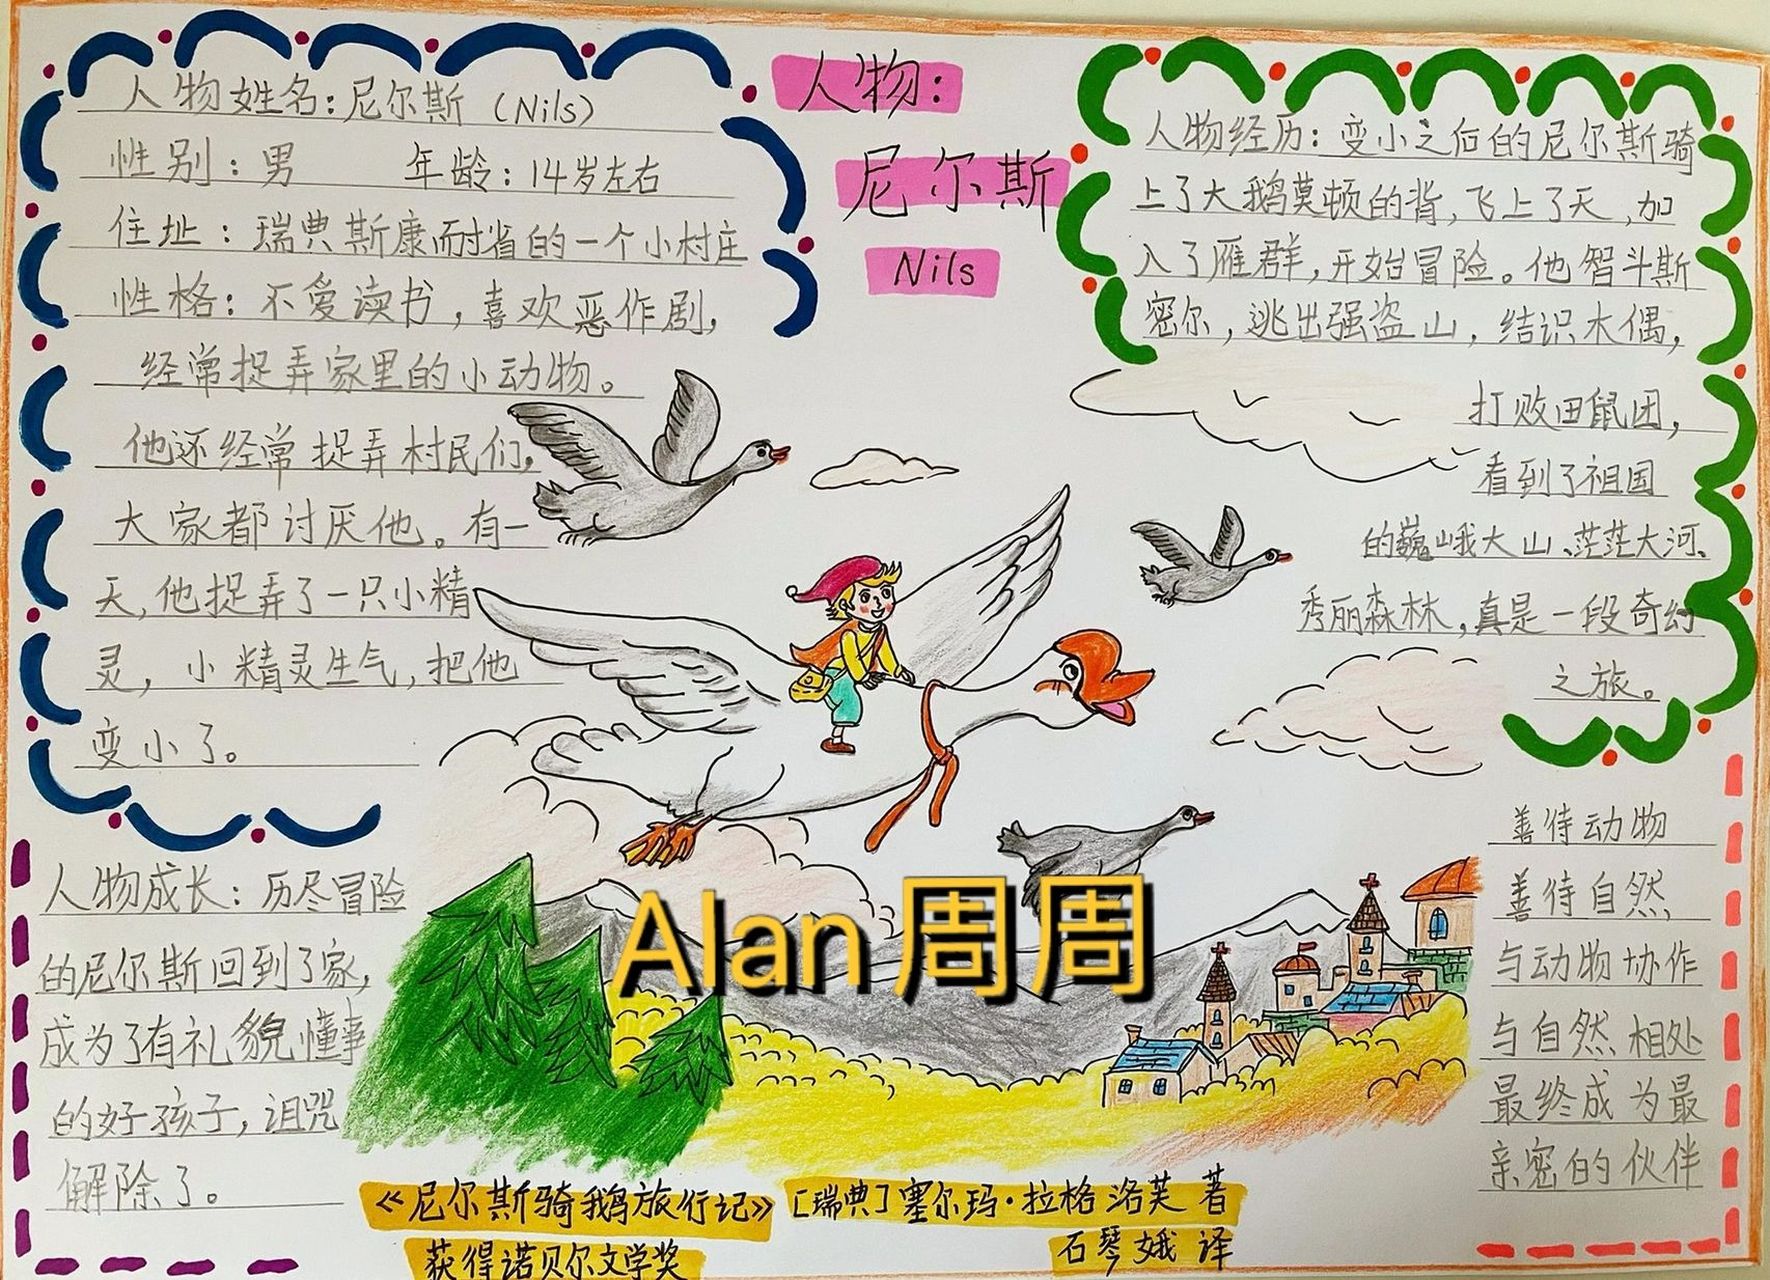 人物姓名：尼尔斯（Nils）
性别：男 年龄：14岁左右
住址：瑞典斯康耐省的一个小村庄
性格：不爱读书，喜欢恶作剧，
经常捉弄家里的小动物。
他还经常捉弄村民们，
大家都讨厌他。有一
天，他捉弄了一只小精
灵，小精灵生气，把他
变小了。
人物：
尼尔斯
Nils
人物经历：变小之后的尼尔斯骑
上了大鹅莫顿的背，飞上了天，加
入了雁群，开始冒险。他智斗斯
密尔，逃出强盗山，结识木偶，
打败田鼠团，
看到了祖国
的巍峨大山、茫茫大河、
秀丽森林，真是一段奇幻
之旅。
人物成长：历尽冒险
的尼尔斯回到了家，
成为了有礼貌懂事
的好孩子，诅咒
解除了。
善待动物
善待自然
与动物协作
与自然相处
最终成为最
亲密的伙伴
Alan周周
《尼尔斯骑鹅旅行记》[瑞典]塞尔玛·拉格洛芙 著
获得诺贝尔文学奖 石琴娥 译